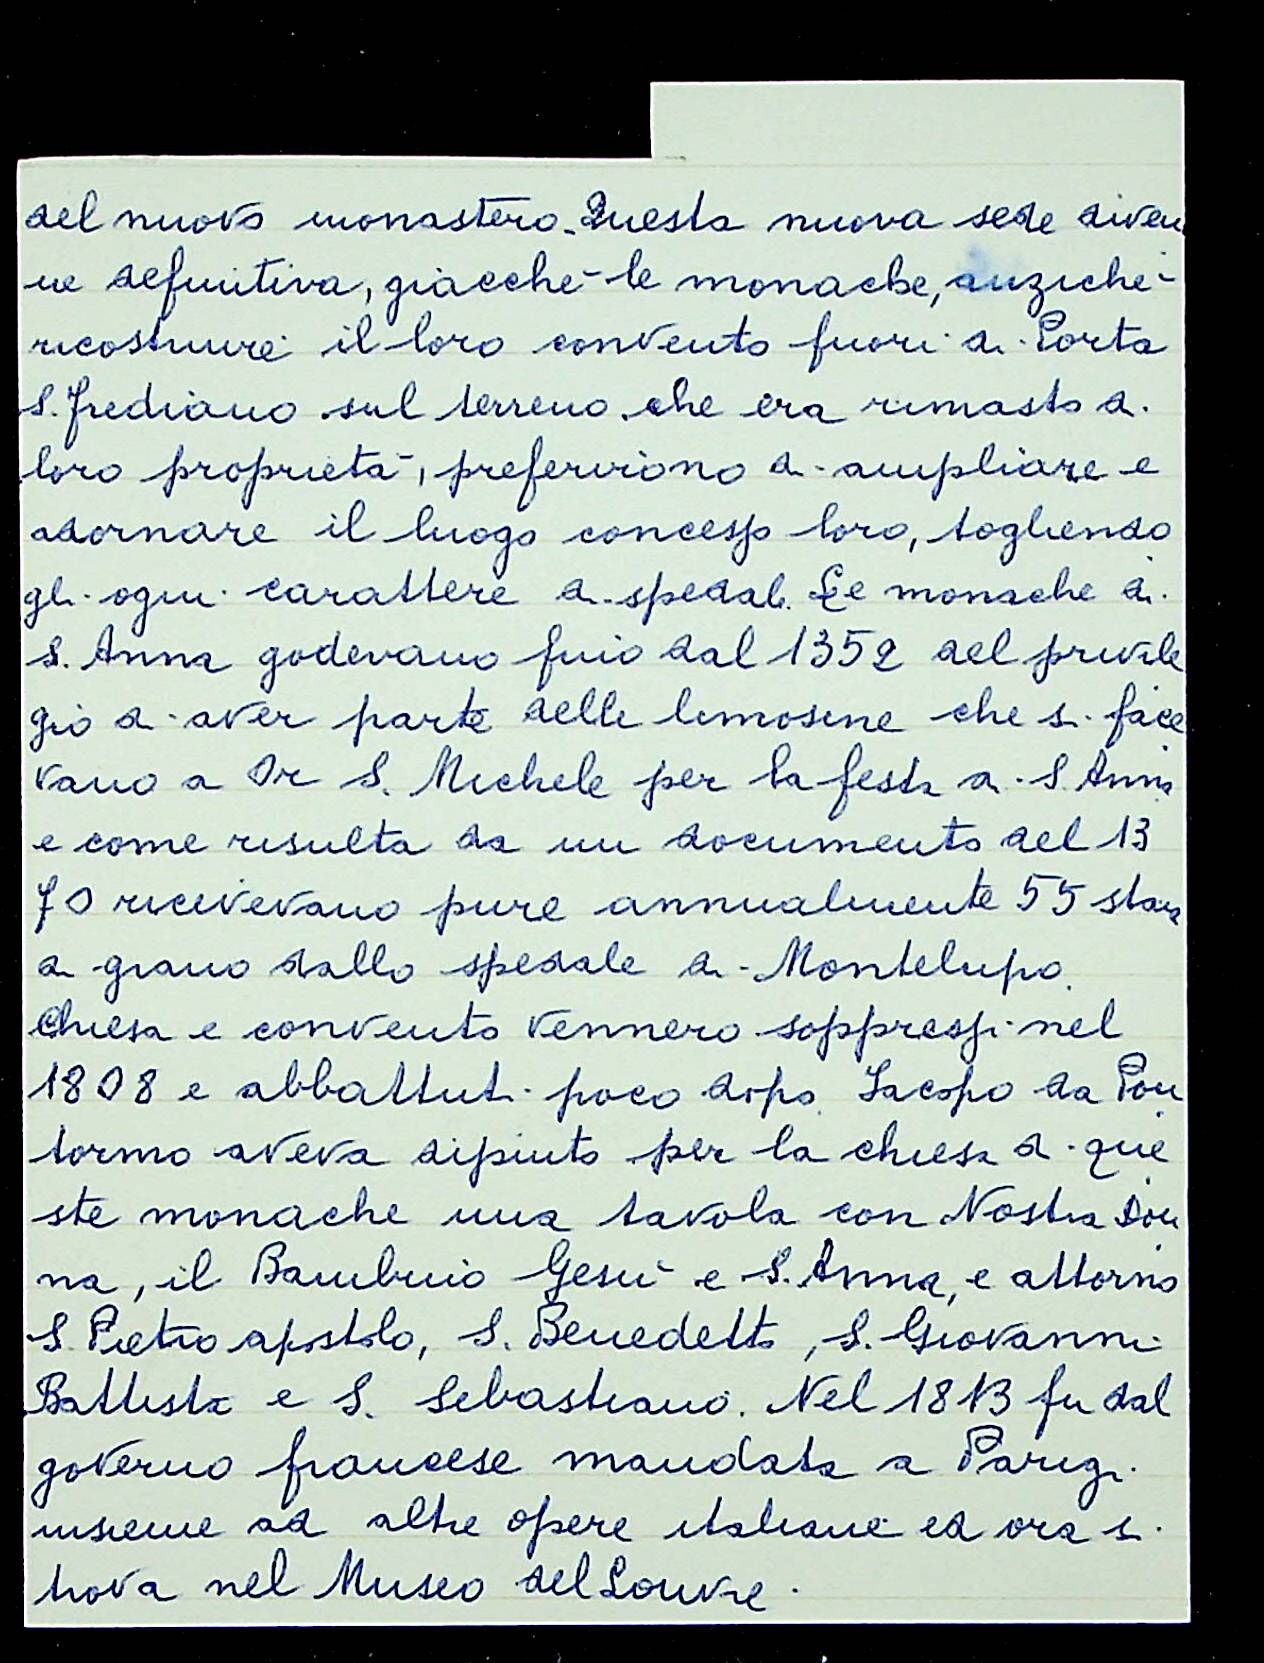 del nuovo monastero. Questa nuova sede diven
ne definitiva, giacché le monache, anziché
ricostruire il loro convento fuori di Porta
S. Frediano sul terreno che era rimasto di
loro proprietà, preferirono di ampliare e
adornare il luogo concesso loro, togliendo
gli ogni carattere di spedale. Le monache di
S. Anna godevano fino dal 1352 del privile
gio di aver parte delle limosine che si face
vano a Or S. Michele per la festa di S. Anna
e come risulta da un documento del 13
70 ricevevano pure annualmente 55 staia
di grano dallo spedale di Montelupo.
Chiesa e convento vennero soppressi nel
1808 e abbattuti poco dopo. Jacopo da Pon
tormo aveva dipinto per la chiesa di que
ste monache una tavola con Nostra Don
na, il Bambino Gesù e S. Anna, e attorno
S. Pietro apostolo, S. Benedetto, S. Giovanni
Battista e S. Sebastiano. Nel 1813 fu dal
governo francese mandata a Parigi
insieme ad altre opere italiane ed ora si
trova nel Museo del Louvre.